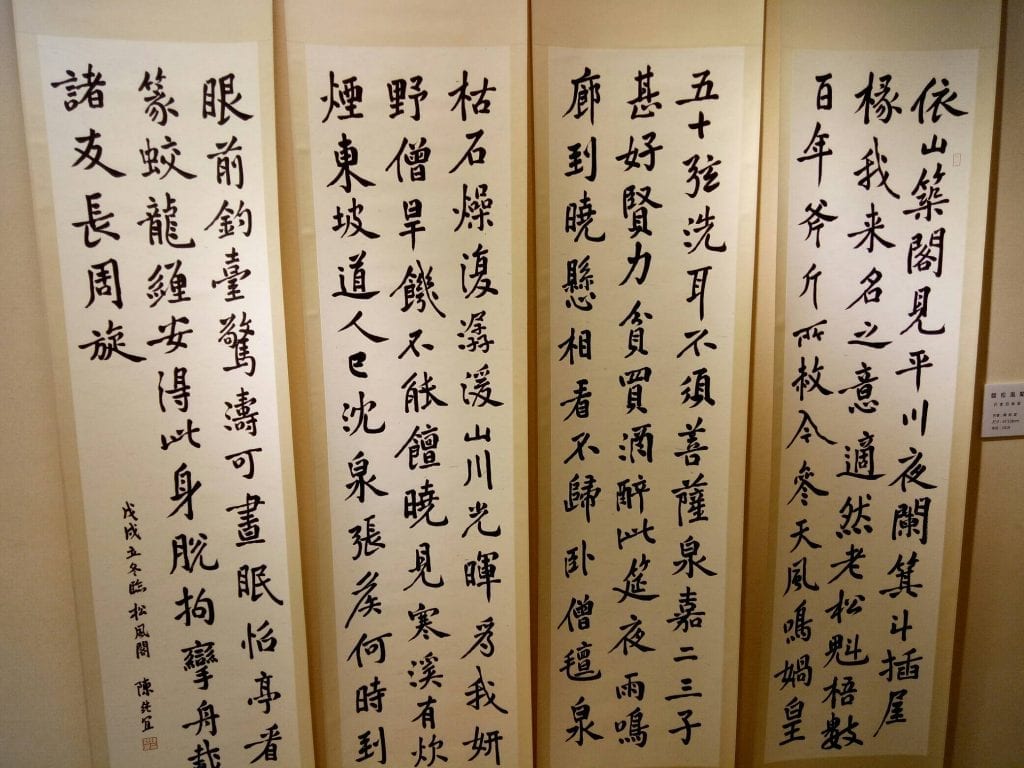 依山築閣見平川夜闌箕斗插屋
椽我来名之意適然老松魁梧數
百年斧斤所赦今參天風鳴媧皇
五十弦洗耳不須菩薩泉嘉二三子
甚好賢力貧買酒醉此筵夜雨鳴
廊到曉懸相看不歸卧僧氈泉
枯石燥復潺湲山川光暉為我妍
野僧旱饑不能饘曉見寒溪有炊
煙東坡道人已沈泉張侯何時到
眼前釣臺驚濤可畫眠怡亭看
篆蛟龍纏安得此身脫拘攣舟載
諸友長周旋
戊戌五冬臨松風閣 陳